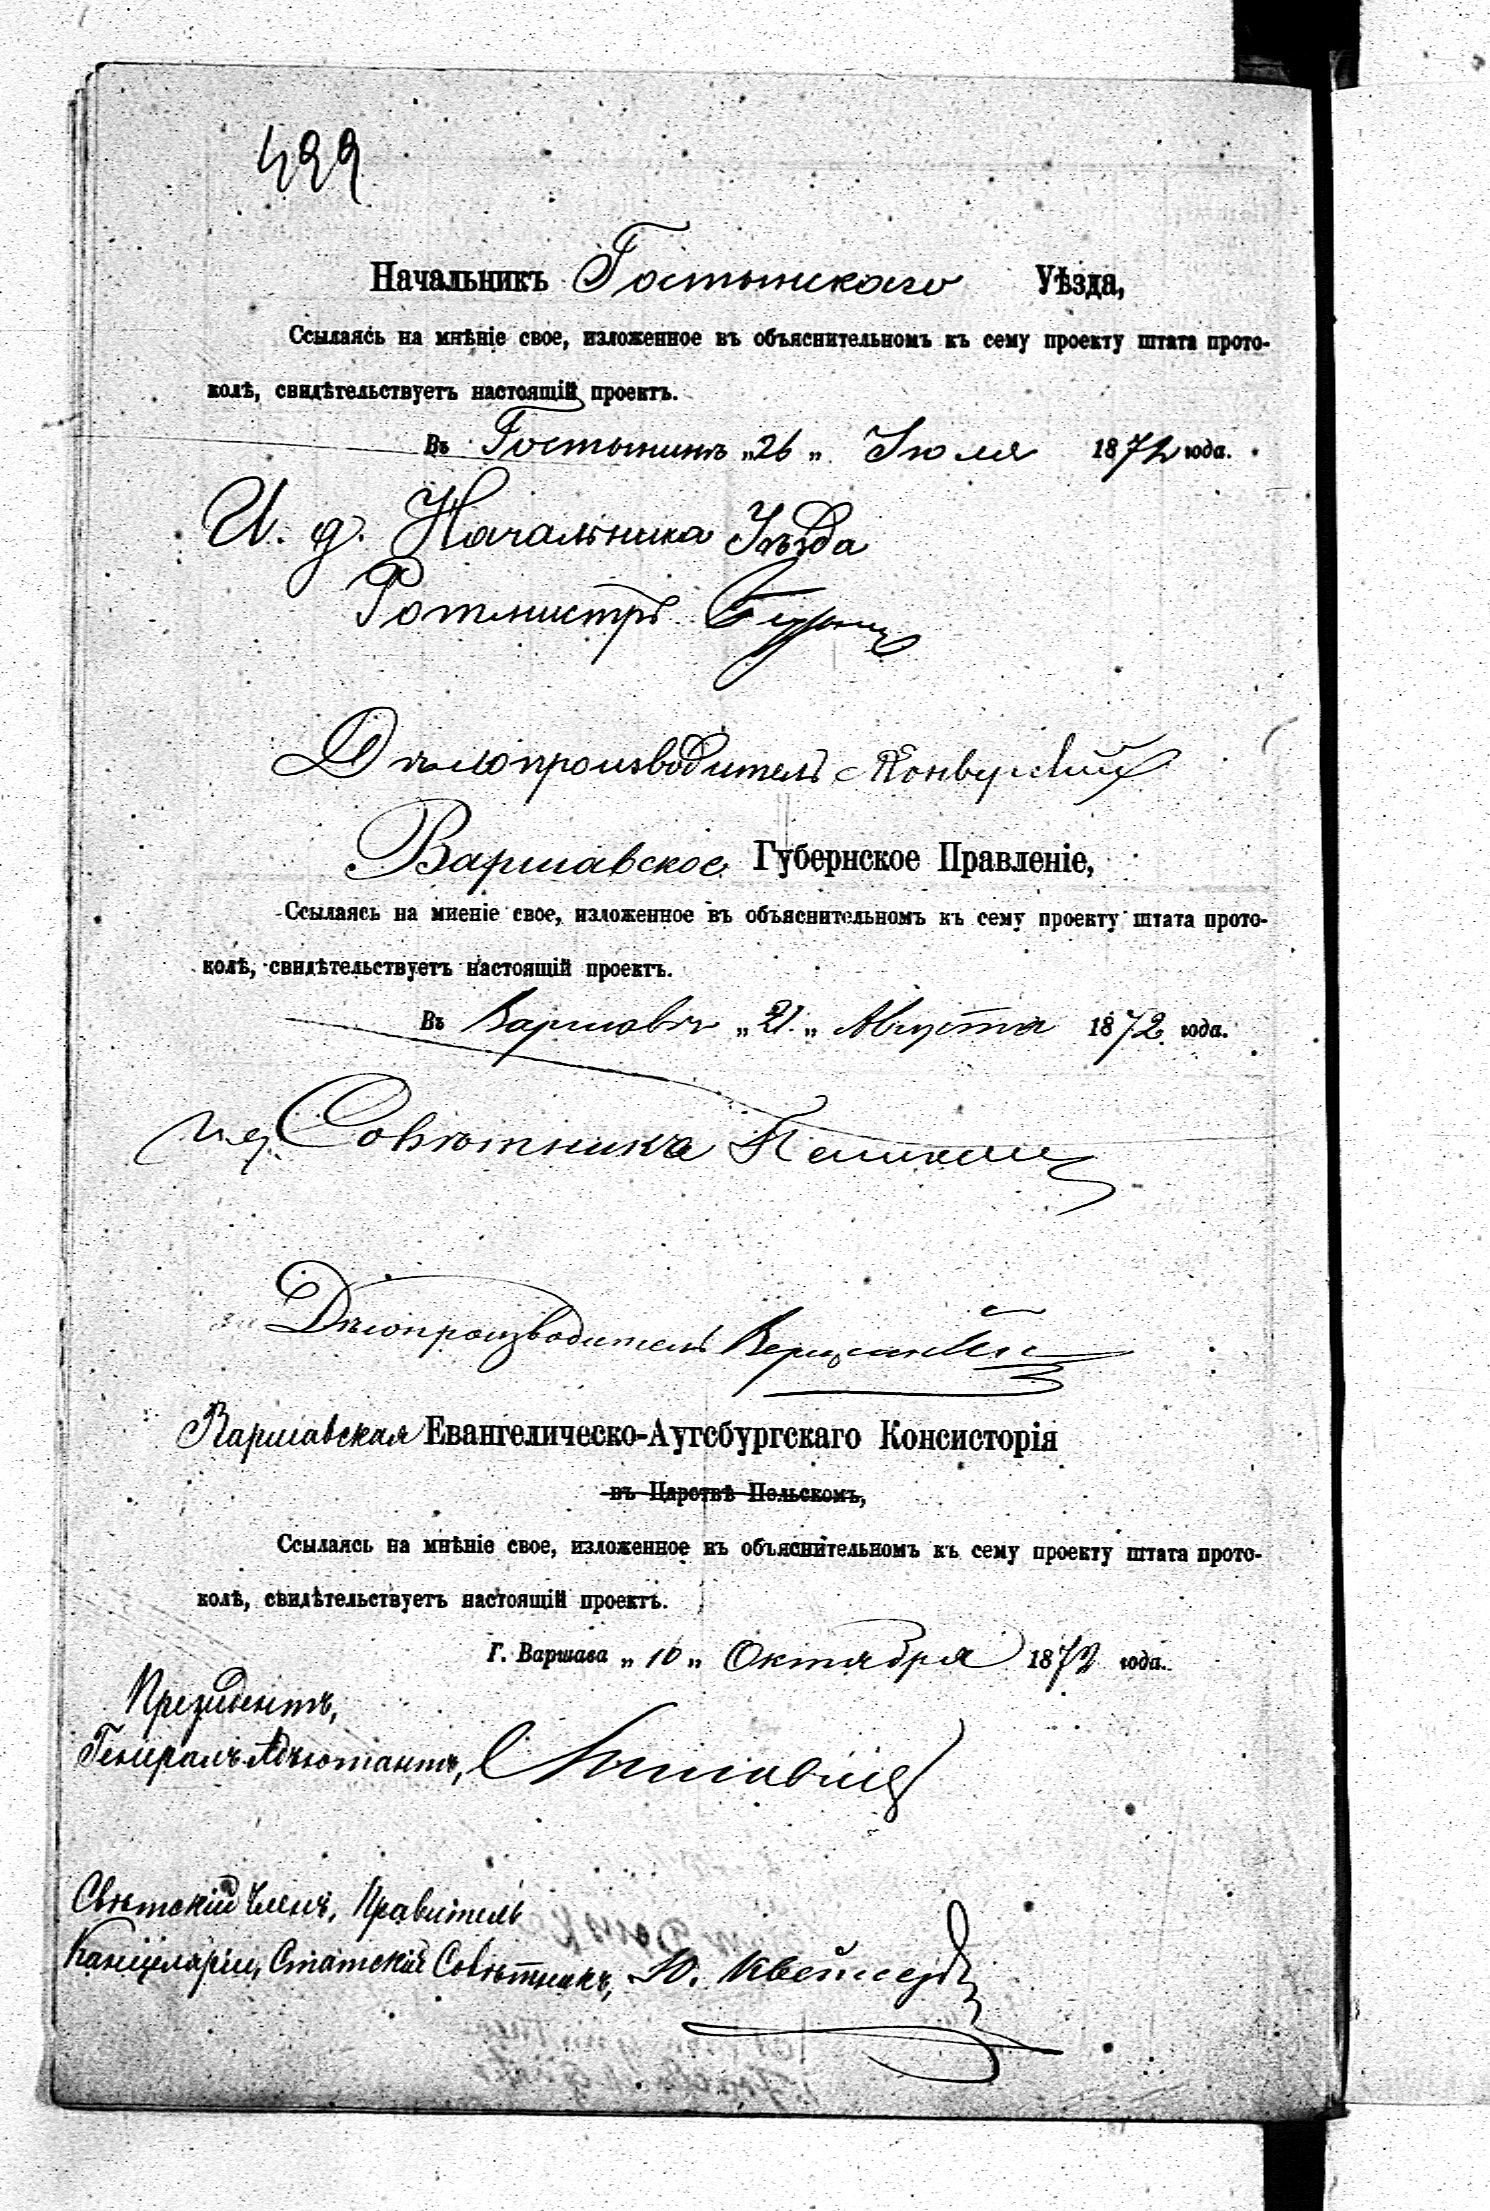 499
Начальникъ Гостынскаго Уѣзда,
Ссылаясь на мнѣніе свое, изложенное въ объяснительномъ къ сему проекту штата прото-
колѣ, свидѣтельствуетъ настоящій проектъ.
Въ Гостынинѣ „26„ Іюля 1872 года.
И. д. Начальника Уѣзда
Ротмистръ
Дѣлопроизводитель
Варшавское Губернское Правленіе,
Ссылаясь на мненіе свое, изложенное въ объяснительномъ къ сему проекту штата прото-
колѣ, свидѣтельствуетъ настоящій проектъ.
Въ Варшавѣ „21.„ Августа 1872 года.
И. д. Совѣтника
за Дѣлопроизводитель
Варшавская Евангелическо-Аугсбургскаго Консисторія
въ Царствѣ Польскомъ,
Ссылаясь на мнѣніе свое, изложенное въ объяснительномъ къ сему проекту штата прото-
колѣ, свидѣтельствуетъ настоящій проектъ.
Г. Варшава „10„ Октября 1872 года.
Президентъ,
Генералъ-Адъютантъ,
Свѣтскій Членъ, Правитель
Канцеляріи, Статскій Совѣтникъ, Ю.